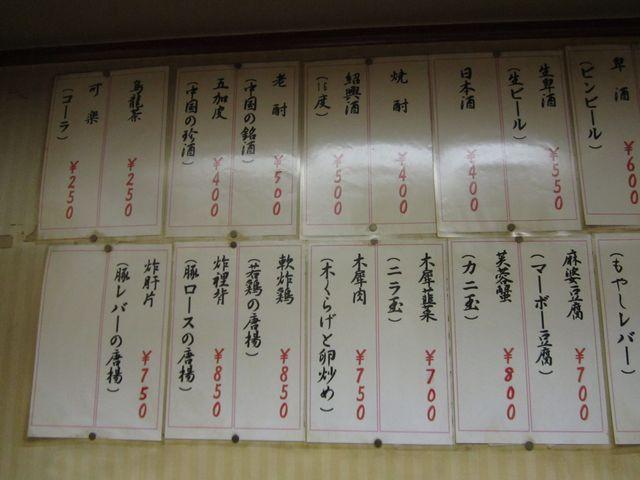 卑酒
(ビンビール)
¥600
生卑酒
(生ビール)
¥550
日本酒
¥400
焼酎
¥400
紹興酒
(15度)
¥500
老酎
(中国の銘酒)
¥500
五加皮
(中国の珍酒)
¥400
烏龍茶
¥250
可楽
(コーラ)
¥250
(もやしレバー)
麻婆豆腐
(マーボー豆腐)
¥700
芙蓉蟹
(カニ玉)
¥800
木犀韮菜
(ニラ玉)
¥700
木犀肉
(木くらげと卵炒め)
¥750
軟炸鶏
(若鶏の唐揚)
¥850
炸裡背
(豚ロースの唐揚)
¥850
炸肝片
(豚レバーの唐揚)
¥750